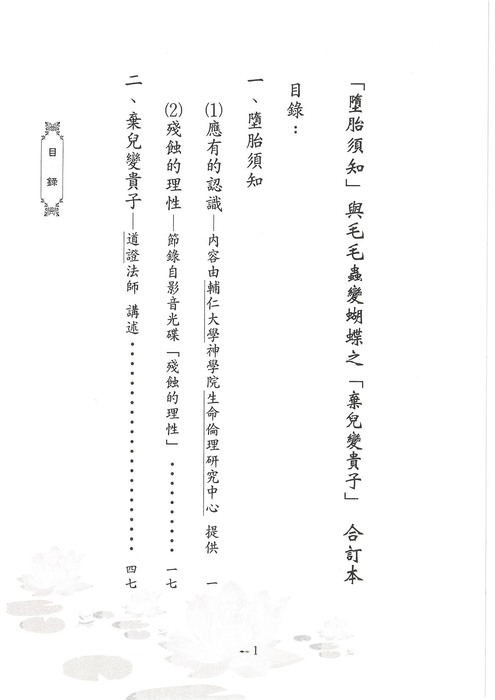 「墮胎須知」與毛毛蟲變蝴蝶之「棄兒變貴子」 合訂本
目錄：
一、墮胎須知
⑴應有的認識—內容由輔仁大學神學院生命倫理研究中心 提供 一
⑵殘蝕的理性—節錄自影音光碟「殘蝕的理性」………… 一七
二、棄兒變貴子—道證法師 講述…………………… 四七
目錄
1